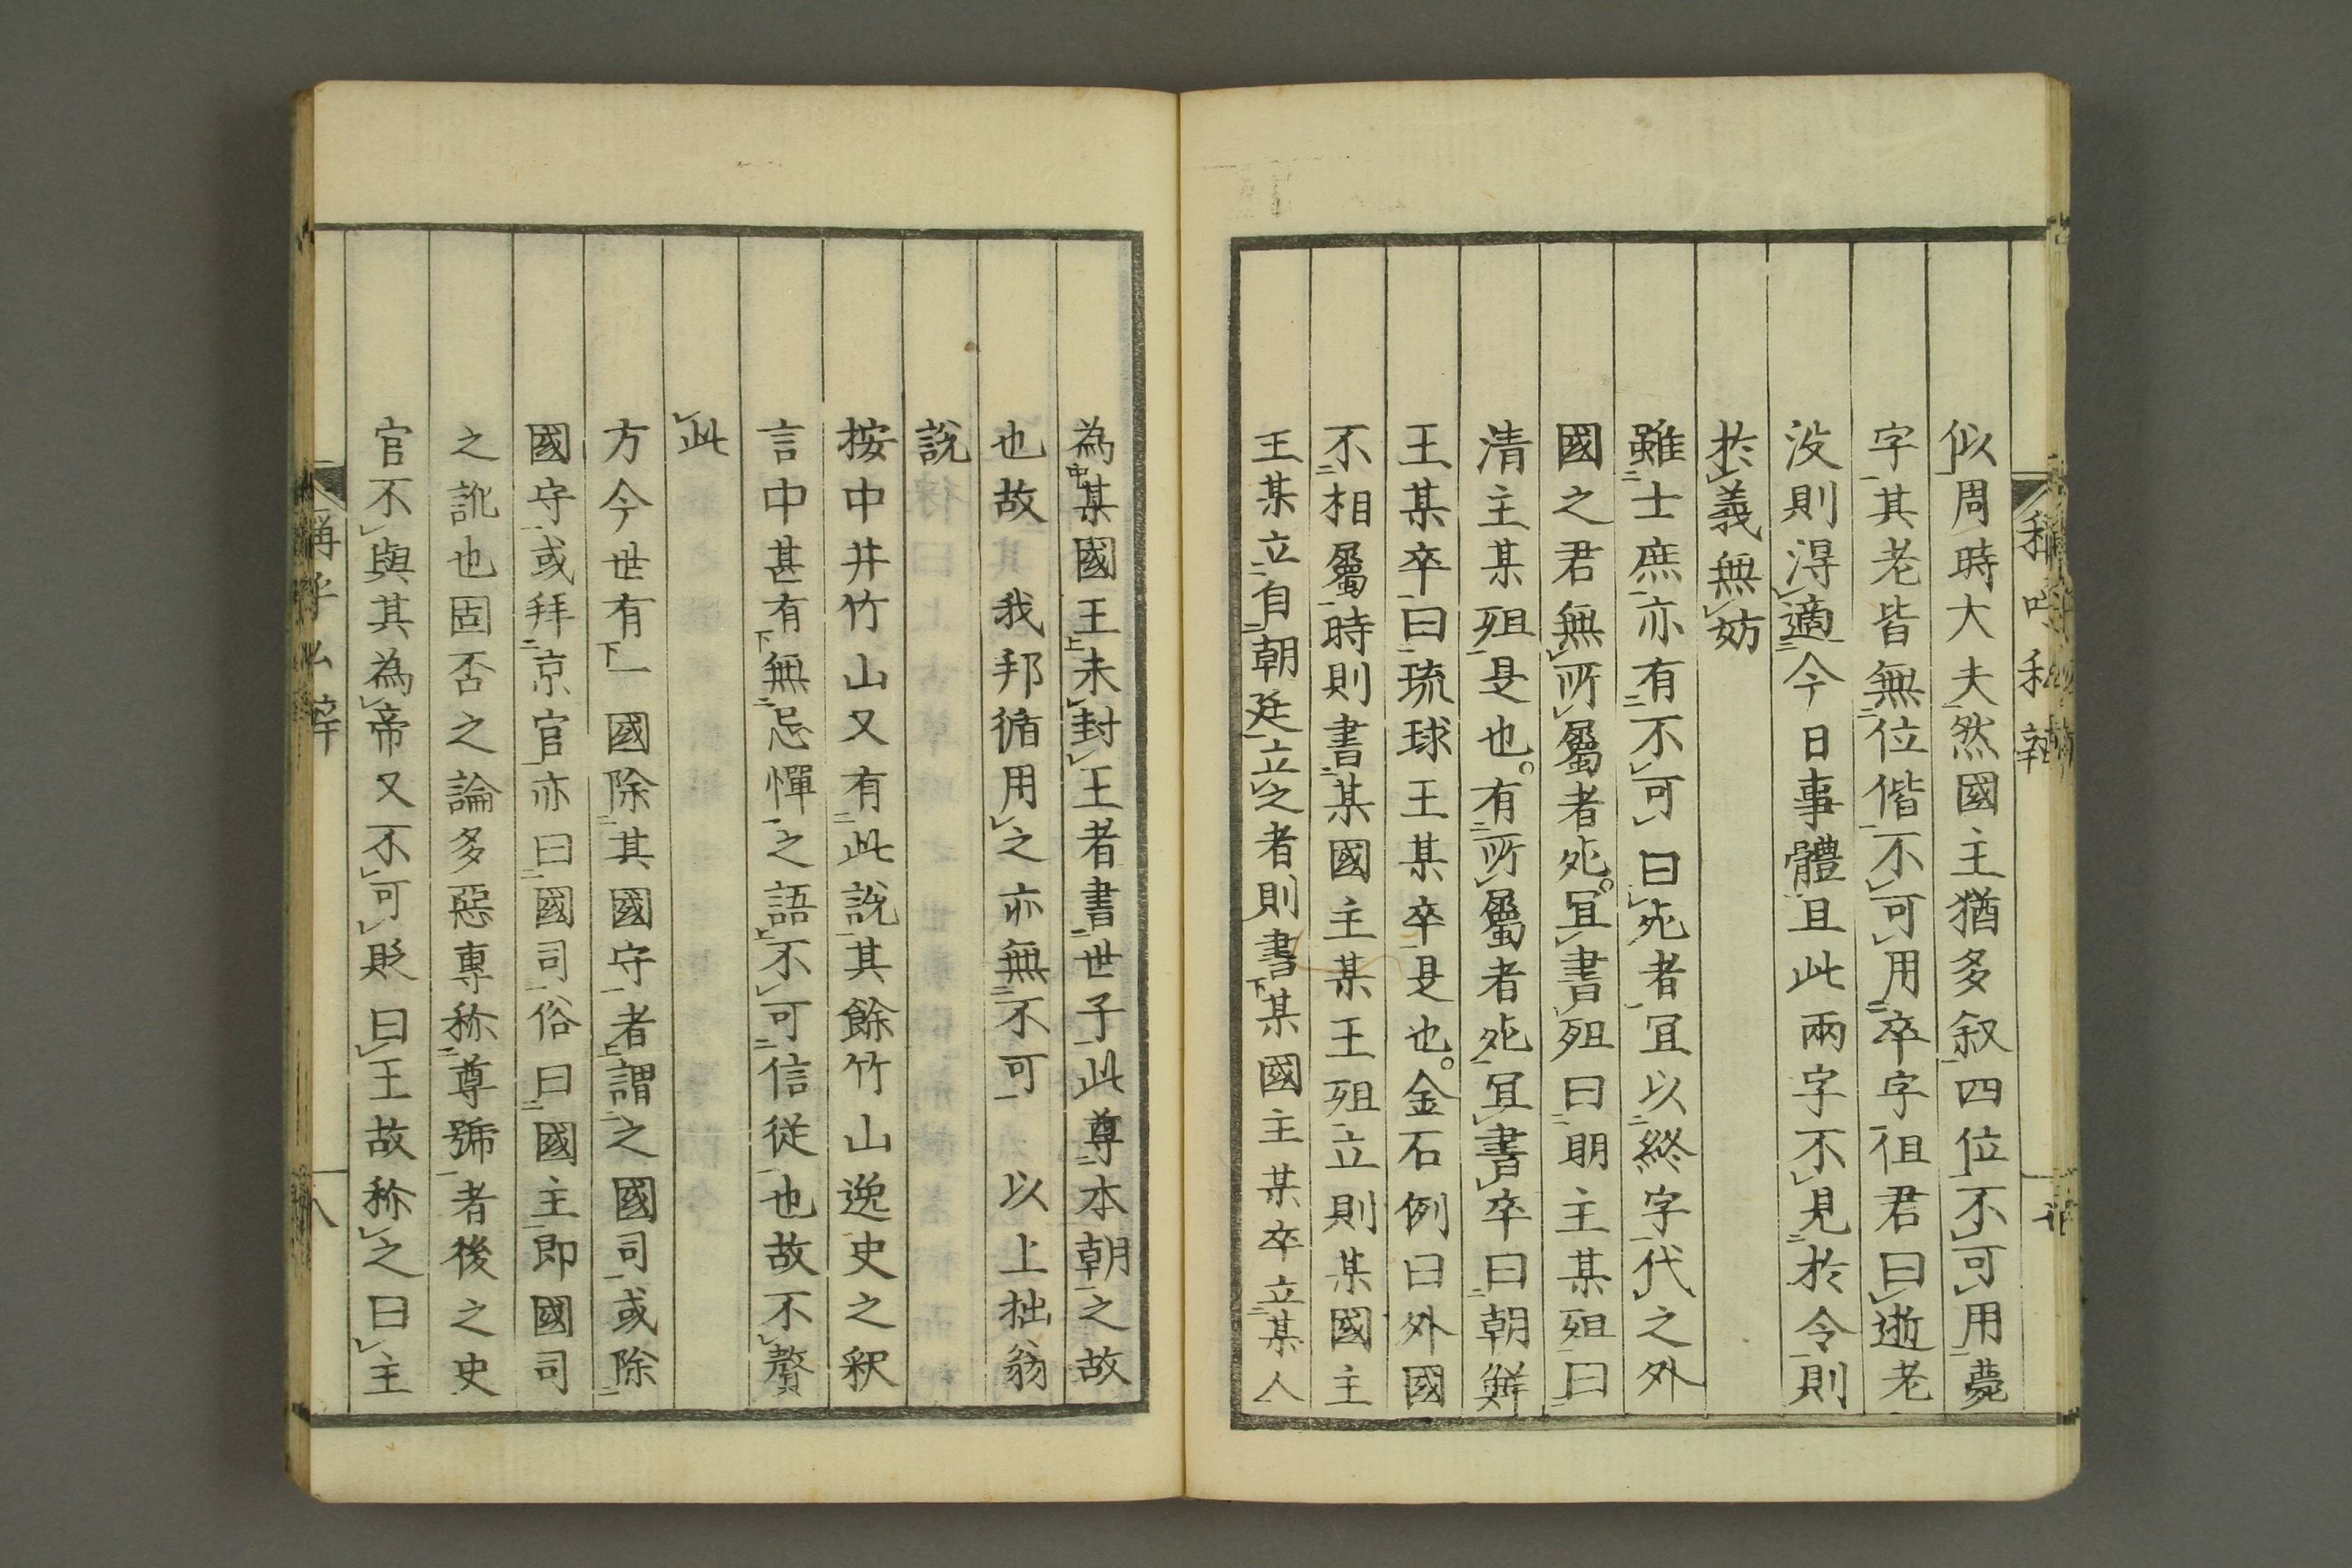 似周時大夫然國主猶多叙四位不可用薨
字其老皆無位偕不可用卒字徂君曰逝老
没則淂適今日事體且此兩字不見於令則
於義無妨
雖士庶亦有不可曰死者宜以終字代之外
國之君無所屬者死宜書殂曰明主某殂曰
清主某殂是也有所屬者死宜書卒曰朝鮮
王某卒曰琉球王某卒是也金石例曰外國
不相屬時則書某國主某王殂立則某國主
王某立自朝廷立之者則書某國主某卒立某人
為某國王未封王者書世子此尊本朝之故
也故 我邦循用之亦無不可 以上拙翁
說
按中井竹山又有此說其餘竹山逸史之釈
言中甚有無忌憚之語不可信従也故不贅
此
方今世有一國除其國守者謂之國司或除
國守或拜京官亦曰國司俗曰國主即國司
之訛也固否之論多惡專称尊號者後之史
官不與其為帝又不可貶曰王故称之曰主
稱呼私辨
八